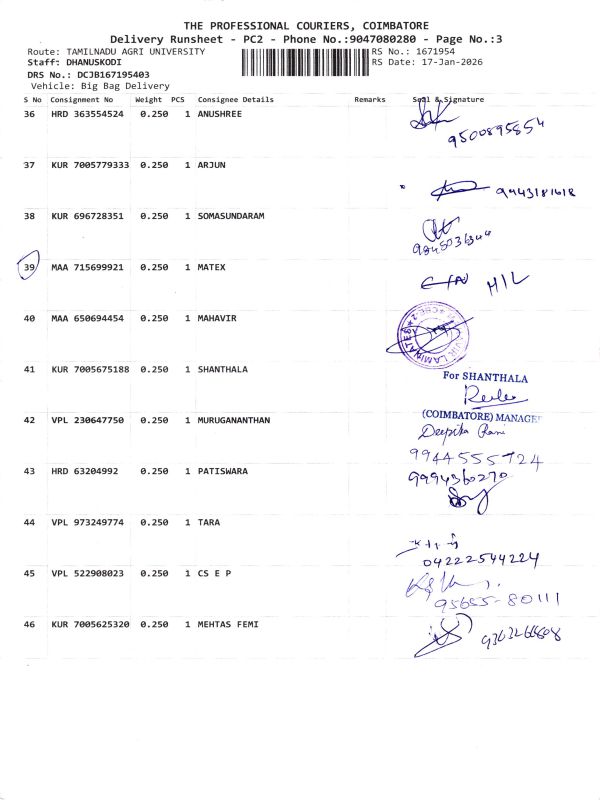 THE PROFESSIONAL COURIERS, COIMBATORE
Delivery Runsheet - PC2 - Phone No.:9047080280 - Page No.:3
Route: TAMILNADU AGRI UNIVERSITY RS No.: 1671954
Staff: DHANUSKODI RS Date: 17-Jan-2026
DRS No.: DCJB167195403
Vehicle: Big Bag Delivery
S No Consignment No Weight PCS Consignee Details Remarks Seal & Signature
36 HRD 363554524 0.250 1 ANUSHREE
9500895854
37 KUR 7005779333 0.250 1 ARJUN
9943181618
38 KUR 696728351 0.250 1 SOMASUNDARAM
39 MAA 715699921 0.250 1 MATEX
40 MAA 650694454 0.250 1 MAHAVIR
41 KUR 7005675188 0.250 1 SHANTHALA
For SHANTHALA
(COIMBATORE) MANAGER
42 VPL 230647750 0.250 1 MURUGANANTHAN
Deepika Rani
9944555724
43 HRD 63204992 0.250 1 PATISWARA
9994360270
44 VPL 973249774 0.250 1 TARA
04222544224
45 VPL 522908023 0.250 1 CS E P
95655-80111
46 KUR 7005625320 0.250 1 MEHTAS FEMI